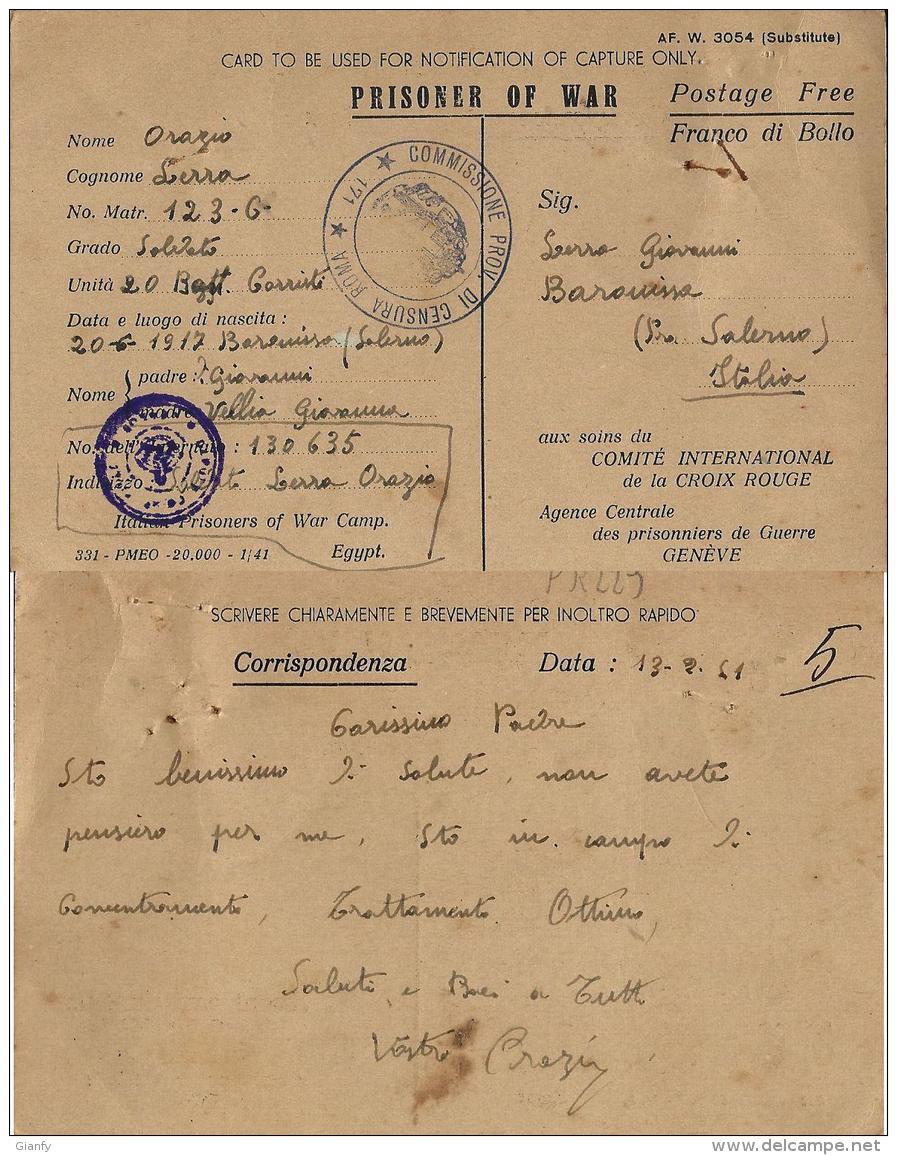 AF. W. 3054 (Substitute)
CARD TO BE USED FOR NOTIFICATION OF CAPTURE ONLY.
PRISONER OF WAR
Postage Free
Franco di Bollo
Nome Orazio
Cognome Lerra
No. Matr. 123-6-
Grado Soldato
Unità 20 Bgtt. Carristi
Data e luogo di nascita :
20-6-1917 Baronissa (Salerno)
Nome
padre : Giovanni
madre Vellia Giovanna
No. dell'Internato : 130635
Indirizzo : Soldato Lerra Orazio
Italian Prisoners of War Camp.
331 - PMEO -20.000 - 1/41 Egypt.
COMMISSIONE PROV. DI CENSURA ROMA ★ 171 ★
Sig.
Lerra Giovanni
Baronissa
(Pro. Salerno)
Italia
aux soins du
COMITÉ INTERNATIONAL
de la CROIX ROUGE
Agence Centrale
des prisonniers de Guerre
GENÈVE
SCRIVERE CHIARAMENTE E BREVEMENTE PER INOLTRO RAPIDO
Corrispondenza Data : 13-2.41 5
Carissimo Padre
Sto benissimo di salute, non avete
pensiero per me, Sto in campo di
Concentramento, Trattamento Ottimo,
Saluti e Baci a Tutti
Vostro Orazio
Gianfy
www.delcampe.net